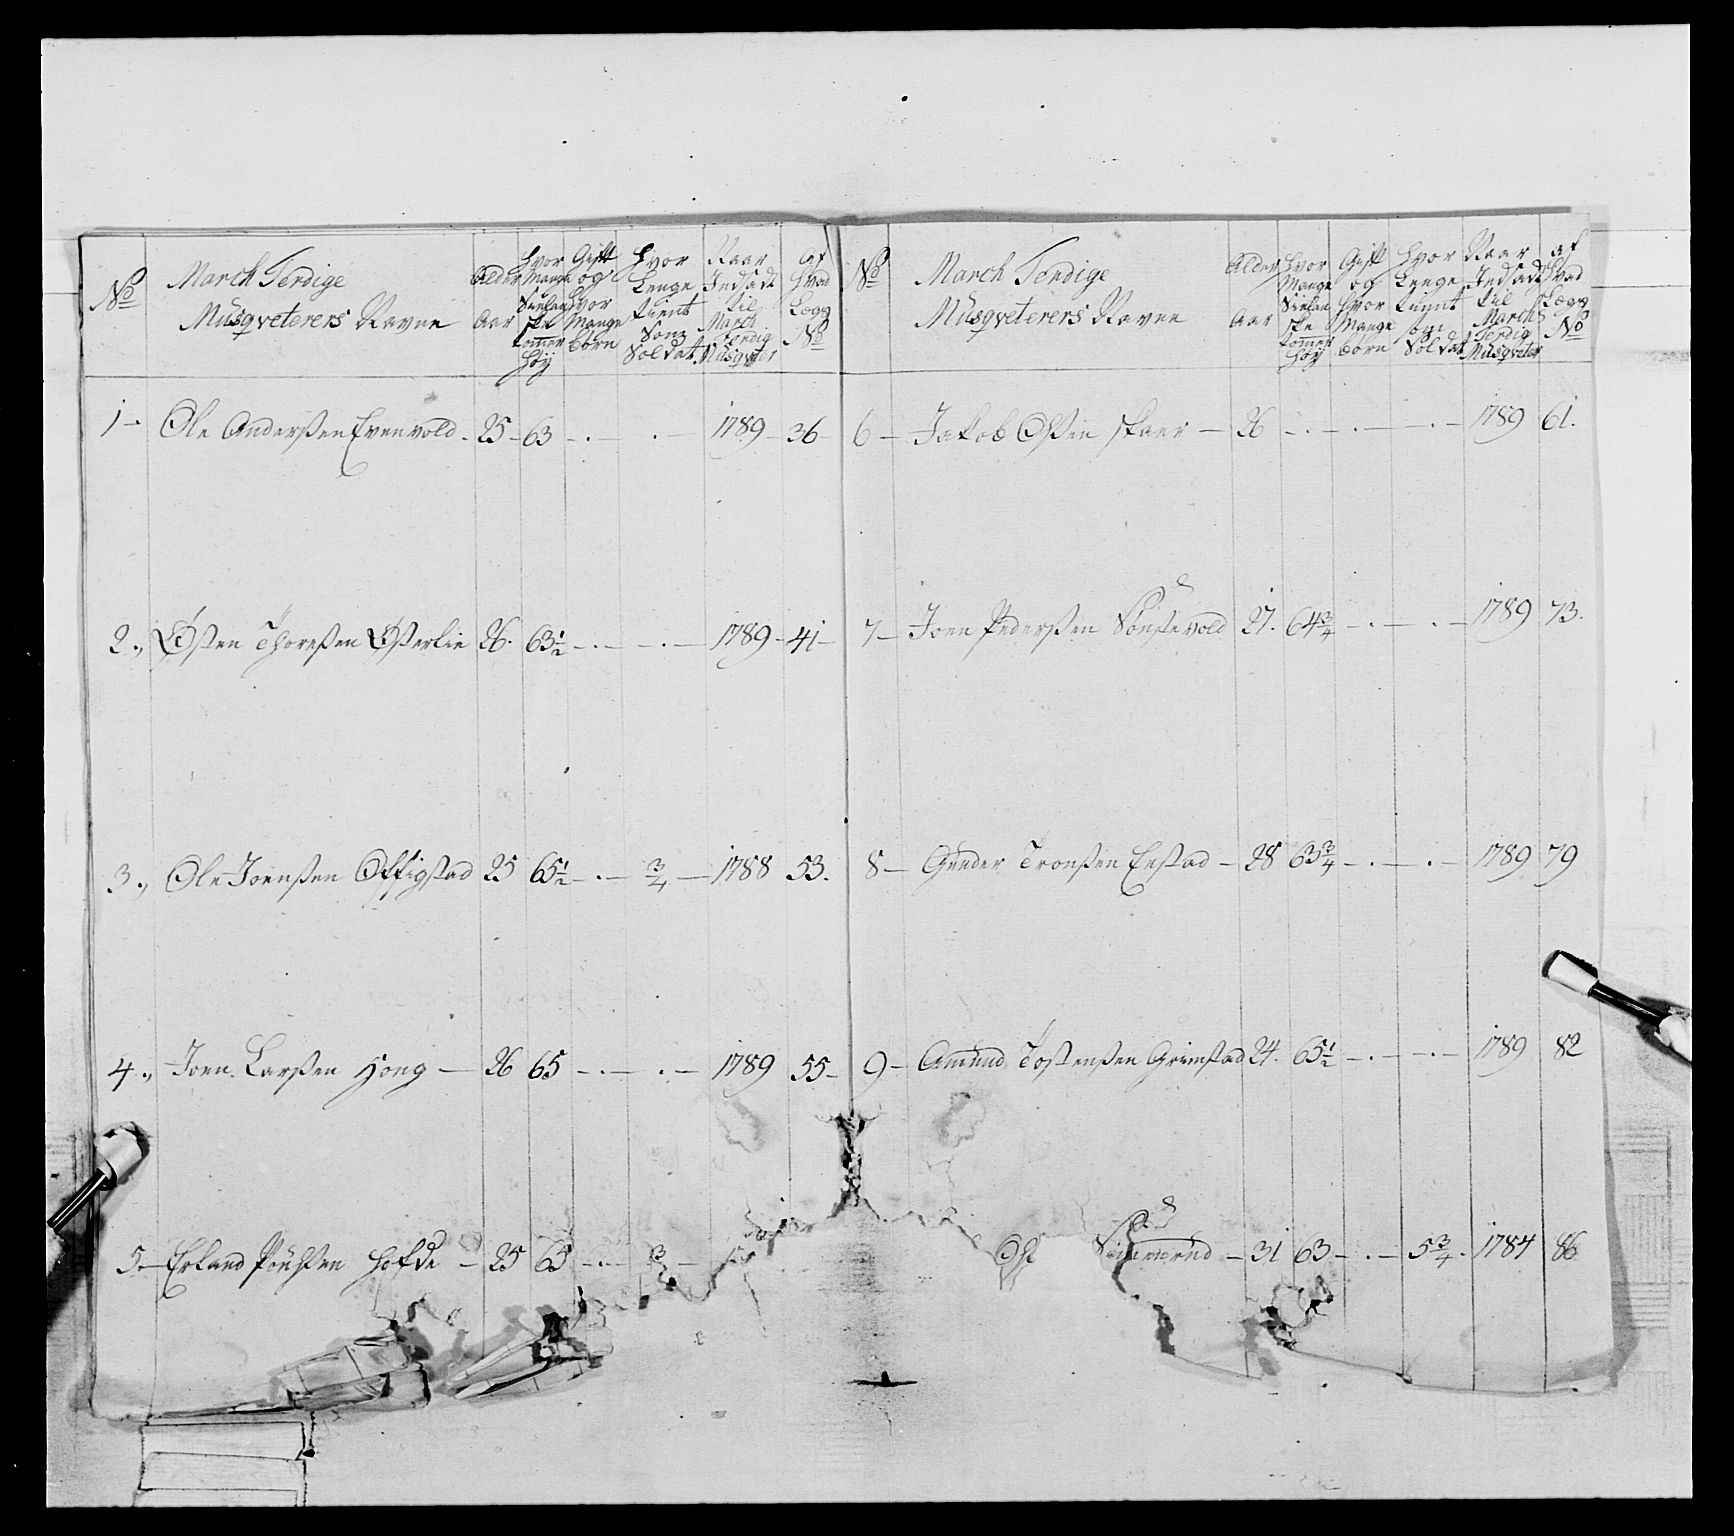 No
March Ferdige
Musqveterers Navne
Alder
Aar
Hvor
Mange
Siælandske
tommer
høy
Gift
og
hvor
Mange
børn
Hvor
Lenge
tient
Som
Soldat
Naar
Indsadt
til
March
Ferdig
Musqveter
af
hvad
Lægg
No
1 - Ole Anderßen Evenvold - 25 - 63 - . - . - 1789 - 36 -
2., Østen Thoreßen Østerlie 26. 63 1/2 - . - . - 1789 - 41 -
3., Ole Joenßen Offigstad 25 65 1/2 - . - 3/4 - 1788 53.
4., Joen Larßen Hong - 26 65 - . - . - 1789 55 -
5 - Erland Poulsen Hofde - 25 65 - . - 3
No
March Ferdige
Musqveterers Navne
Alder
Aar
Hvor
Mange
Siælandske
tommer
høy
Gift
og
hvor
Mange
børn
Hvor
Lenge
tient
om
Soldat
Naar
Indsadt
til
March
Ferdig
Musqveter
af
hvad
Lægg
No
6 - Jakob Olsen Skaer - 26 - . - . - . - 1789 61.
7 - Joen Pederßen 27. 64 3/4 - . - . - 1789 73.
8 - Gunder Tronßen Enstad - 28 63 3/4 - . - . - 1789 79
9 - Amund Tostenßen Grimstad 24. 65 1/2 - . - . - 1789 82
Ol - 31 63 - . - 5 3/4 . 1784 86